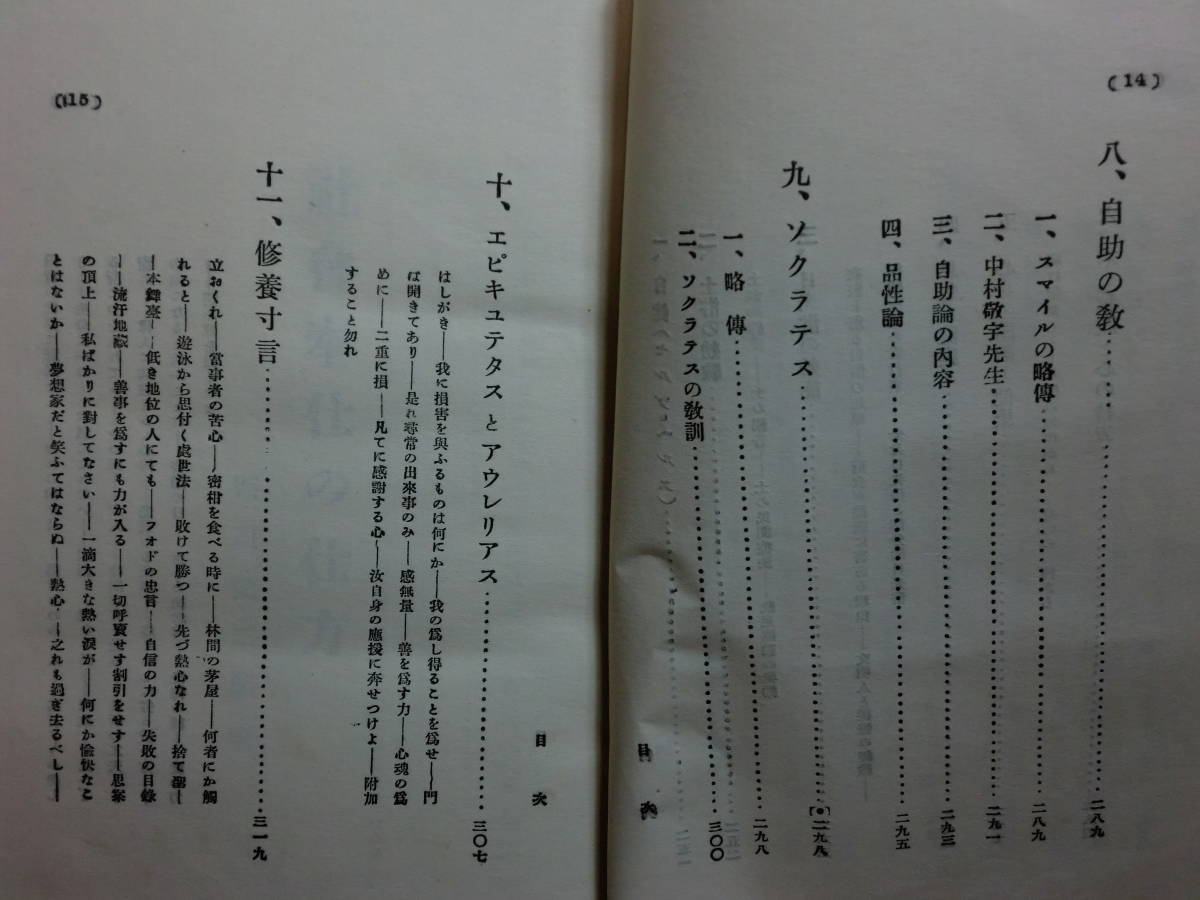 (14)
八、自助の敎……二八九
一、スマイルの略傳……二八九
二、中村敬宇先生……二九一
三、自助論の內容……二九三
四、品性論……二九五
九、ソクラテス……二九八
一、略傳……二九八
二、ソクラテスの敎訓……三〇〇
目次
(15)
目次
十、エピキユテタスとアウレリアス……三〇七
はしがき――我に損害を與ふるものは何にか――我の爲し得ることを爲せ――門
は開きてあり――是れ尋常の出來事のみ――感無量――善を爲す力――心魂の爲
めに――二重に損――凡てに感謝する心――汝自身の應援に奔せつけよ――附加
すること勿れ
十一、修養寸言……三一九
立おくれ――當事者の苦心――密柑を食べる時に――林間の茅屋――何者にか觸
れると――遊泳から思付く處世法――敗けて勝つ――先づ熱心なれ――捨て
―本舞臺――低き地位の人にても――フオドの忠言――自信の力――失敗の目錄
――流汗地藏――善事を爲すにも力が入る――一切呼賣せす割引をせす――思案
の頂上――私ばかりに對してなさい――一滴大きな熱い淚が――何にか愉快なこ
とはないか――夢想家だと笑ふてはならぬ――熱心――之れも過ぎ去るべし――